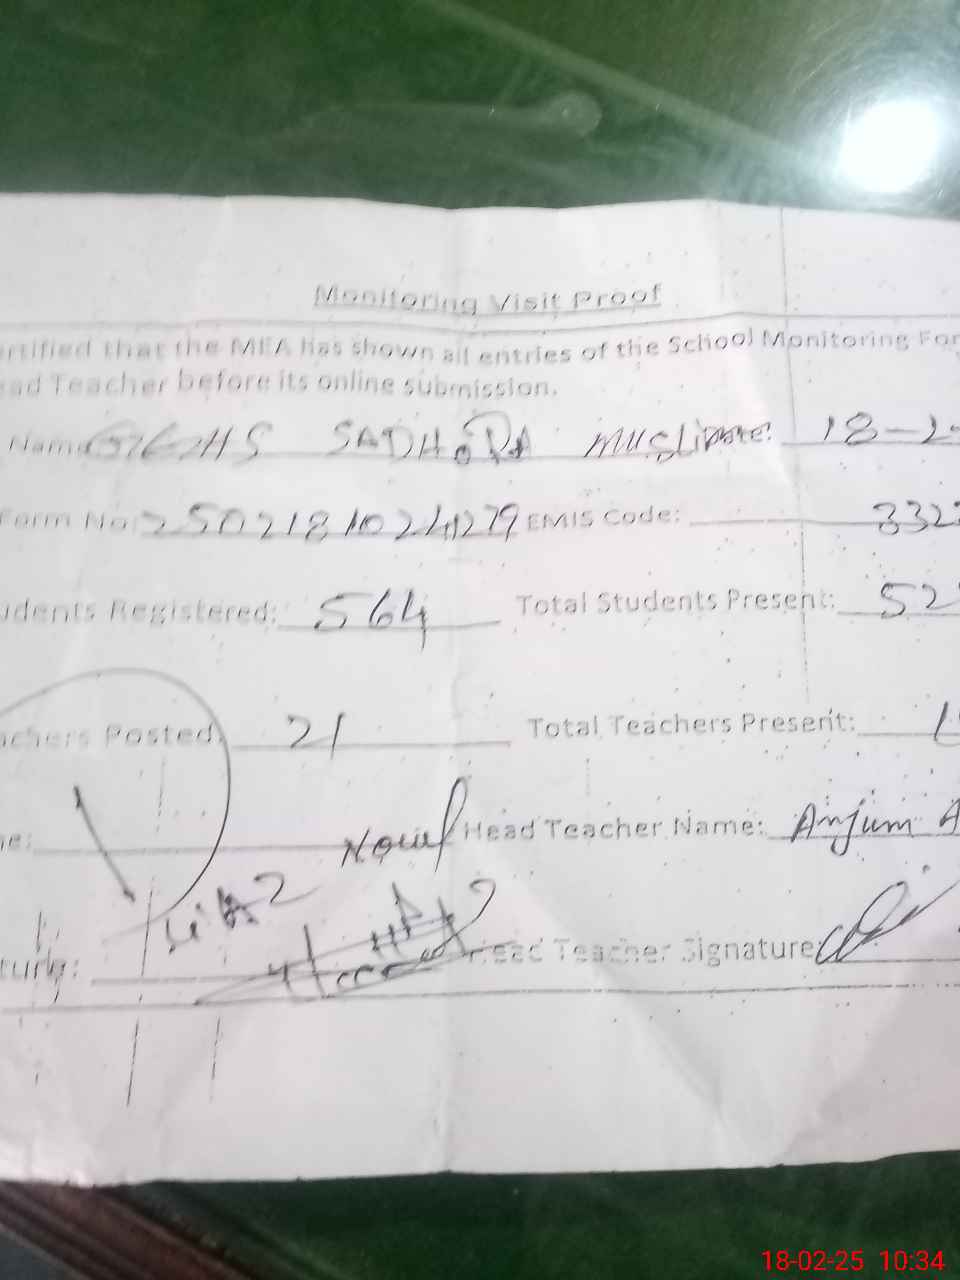 Monitoring Visit Proof
ertified that the MEA has shown all entries of the School Monitoring For
ead Teacher before its online submission.
Name GGHS SADHORA MUSLIM Date: 18-2
Form No: 250218102411279 EMIS Code: 332
udents Registered: 564 Total Students Present: 52
achers Posted 21 Total Teachers Present: 1
e: Head Teacher Name: Anjum A
Head Teacher Signature
18-02-25 10:34